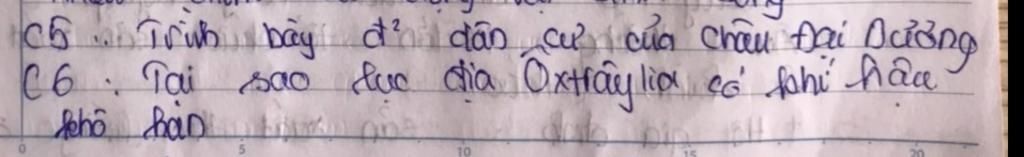 C5. Trình bày đ² dân cư của Châu Đại Dương
C6. Tại sao lục địa Ôxtrâylia có khí hậu
khô hạn
0 5 10 15 20